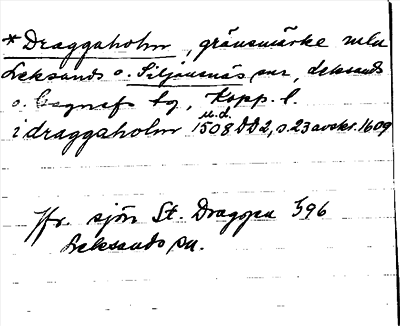 *Draggaholm, gränsmärke mln
Leksands o. Siljansnäs snr, Leksands
o. Gagnefs tg, Kopp. l.
i draggaholm u.d. 1508 DD2, s. 23 avskr. 1609
Jfr. sjön St. Draggen 596
Leksands sn.